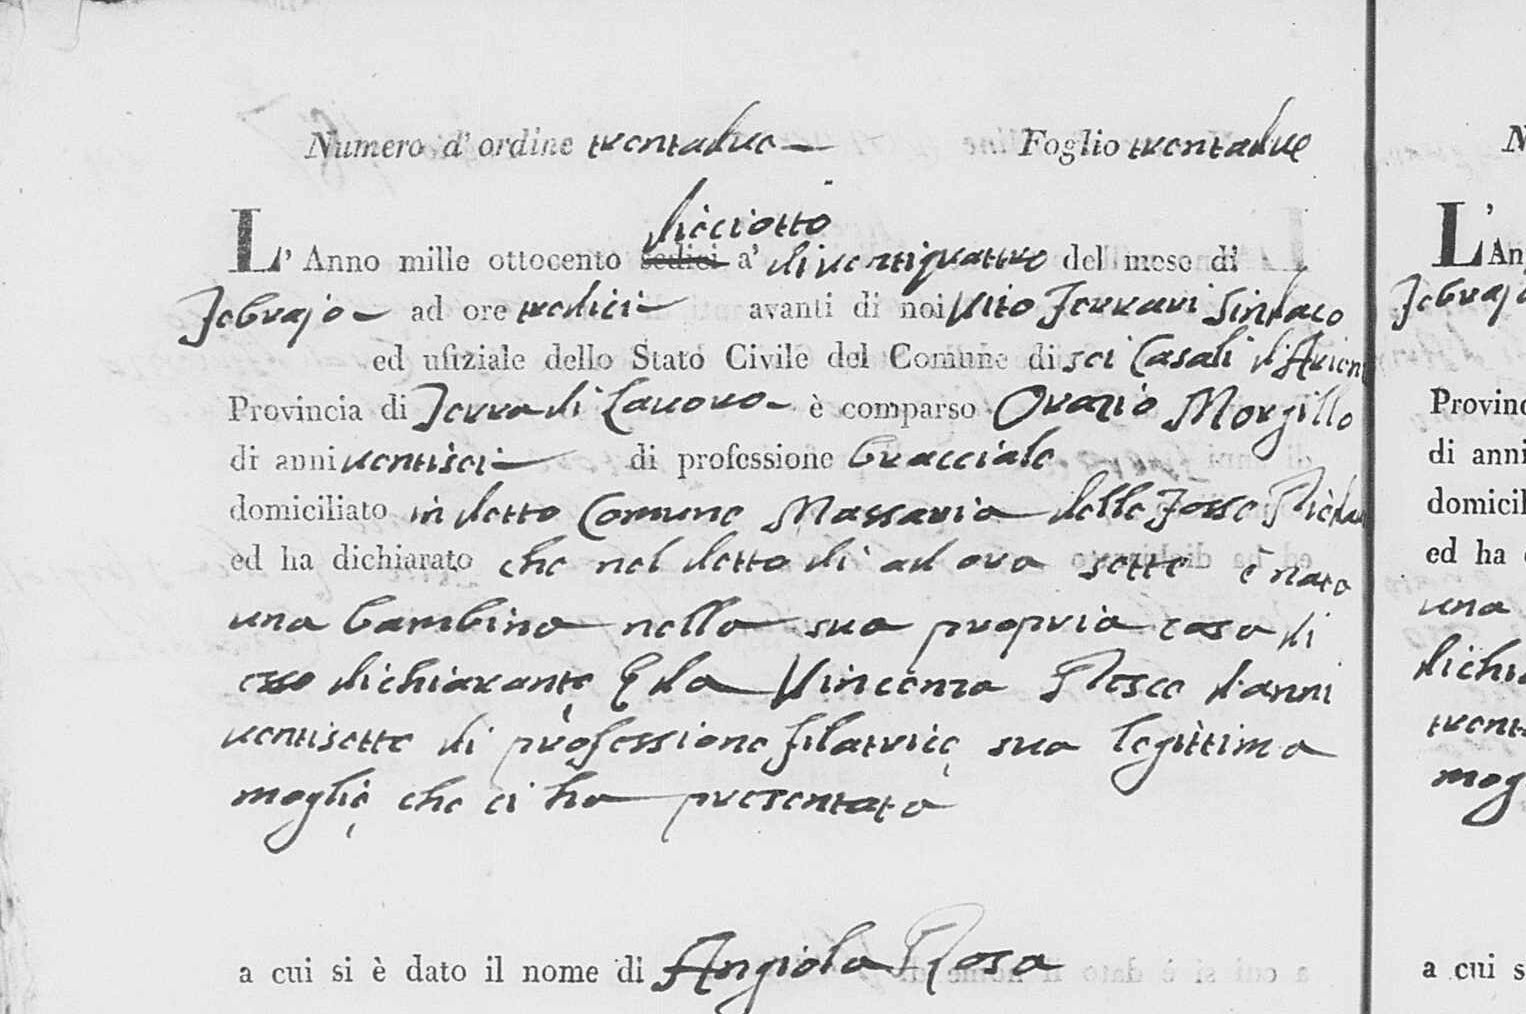 Numero d'ordine trentadue Foglio trentadue
dieciotto
L'Anno mille ottocento sedici a' di ventiquattro del mese di
Febrajo ad ore tredici avanti di noi Vito Ferrari Sindaco
ed ufiziale dello Stato Civile del Comune di sei Casali d'Arien
Provincia di Terra di Lavoro è comparso Orazio Morgillo
di anni ventisei di professione bracciale
domiciliato in detto Comune Massaria delle Fosse
ed ha dichiarato che nel detto dì ad ora sette è nata
una bambina nella sua propria casa di
esso dichiarante e da Vincenza Pesce d'anni
ventisette di professione filatrice sua legittima
moglie che ci ha presentata
a cui si è dato il nome di Angiola Rosa
N
L'An
Febrajo
Provinc
di anni
domicil
ed ha
una
dichia
trent
mog
a cui s